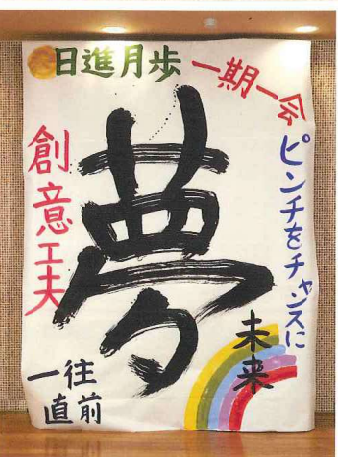 日進月歩
一期一会
ピンチをチャンスに
夢
創意工夫
未来
一往
直前